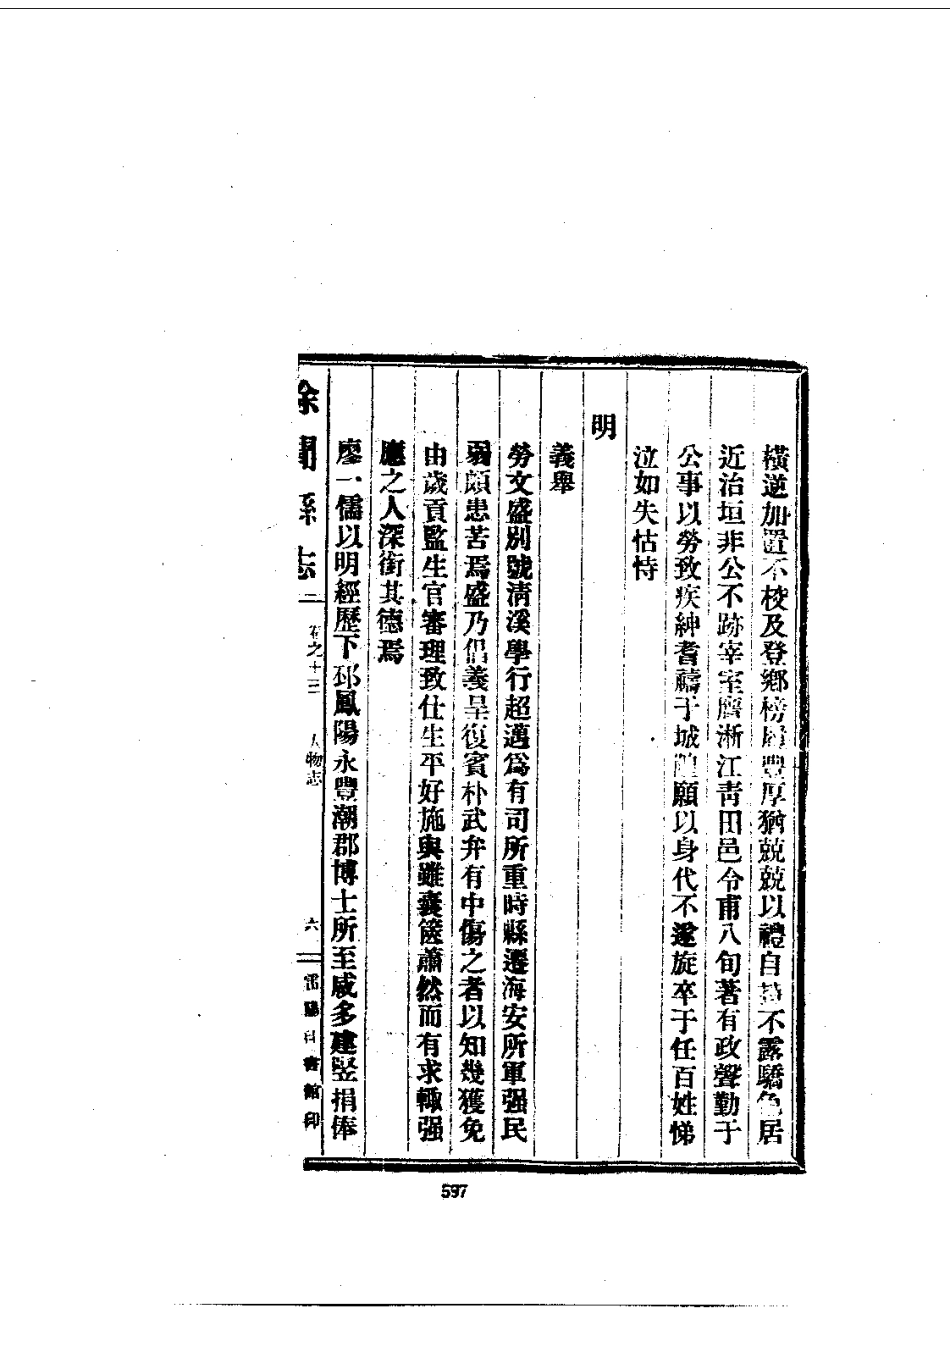 橫逆加置不校及登鄉榜 豐厚猶兢兢以禮自持不露驕色居
近治垣非公不跡宰室曆淅江靑田邑令甫八旬著有政聲勤于
公事以勞致疾紳耆禱于城隍願以身代不遂旋卒于任百姓悌
泣如失怙恃
明
義舉
勞文盛別號淸溪學行超邁爲有司所重時縣遷海安所軍强民
弱頗患苦焉盛乃倡義呈復賓朴武弁有中傷之者以知幾獲免
由歲貢監生官審理致仕生平好施與雖囊篋蕭然而有求輙强
應之人深銜其德焉
廖一儒以明經歷下邳鳳陽永豐潮郡博士所至咸多建竪捐俸
徐聞縣志 卷之十三 人物志 六 雷陽 書館印
597